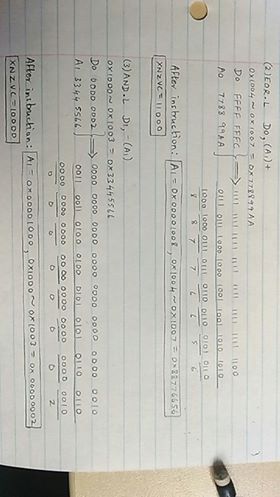 (2) EOR.L D0, (A1)+
0x1004 ~ 0x1007 = 0x778899AA
D0 FFFF FFFC } ⟹ 1111 1111 1111 1111 1111 1111 1111 1100
A0 7788 99AA 0111 0111 1000 1000 1001 1001 1010 1010
1000 1000 0111 0111 0110 0110 0101 0110
8 8 7 7 6 6 5 6
After instruction: A1 = 0x00001008, 0x1004 ~ 0x1007 = 0x88776656
XNZVC = 11000
(3) AND.L D1, -(A1)
0x1000 ~ 0x1003 = 0x33445566
D0 0000 0002 } ⟹ 0000 0000 0000 0000 0000 0000 0000 0010
A1 3344 5566 0011 0011 0100 0100 0101 0101 0110 0110
0000 0000 0000 0000 0000 0000 0000 0010
0 0 0 0 0 0 0 2
After instruction: A1 = 0x00001000, 0x1000 ~ 0x1003 = 0x00000002
XNZVC = 10000